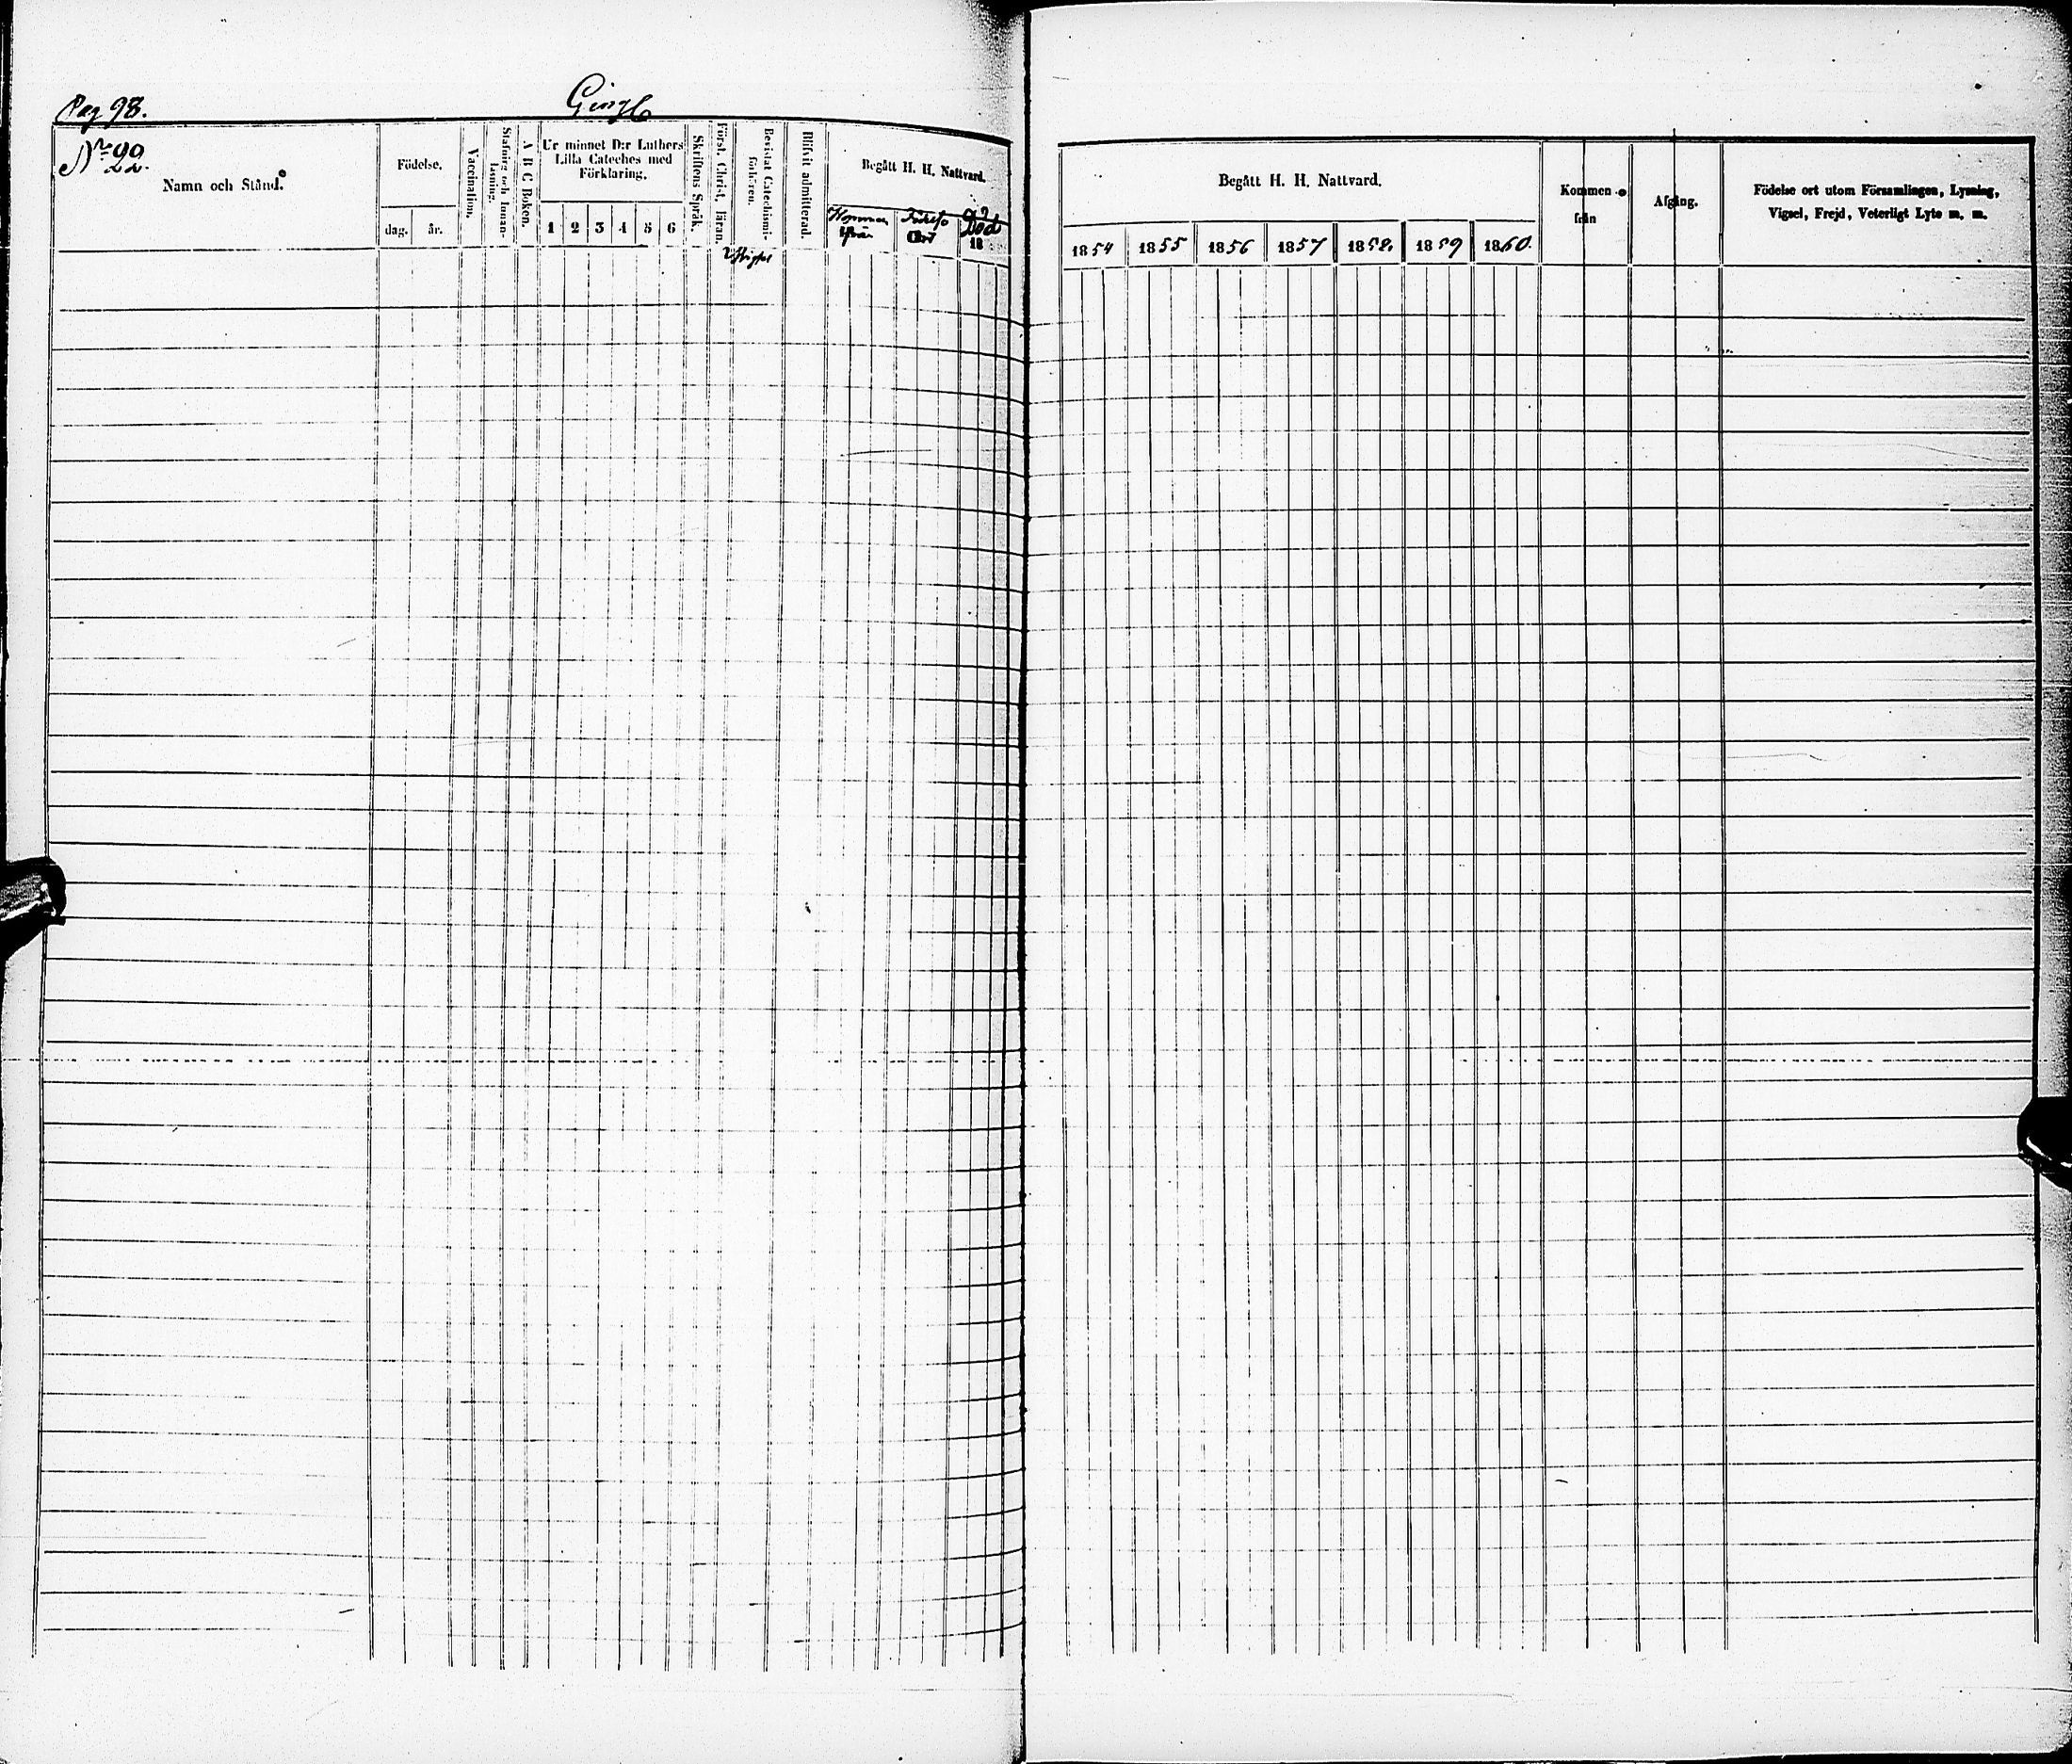 Pag 98.
No 22.
Namn och Stånd.
Födelse.
dag. år.
Vaccination.
Stafning och Innan-
läsning.
A B C Boken.
Ur minnet D:r Luthers
Lilla Cateches med
Förklaring.
1 2 3 4 5 6
Skriftens Språk.
Först. Christ. läran.
Bevistat Catechismi-
förhören.
Blifvit admitterad.
Begått H. H. Nattvard.
Kommen
ifrån
Död
18
Begått H. H. Nattvard.
1854 1855 1856 1857 1858. 1859 1860.
Kommen
från
Afgång.
Födelse ort utom Församlingen, Lysning,
Vigsel, Frejd, Veterligt Lyte m. m.